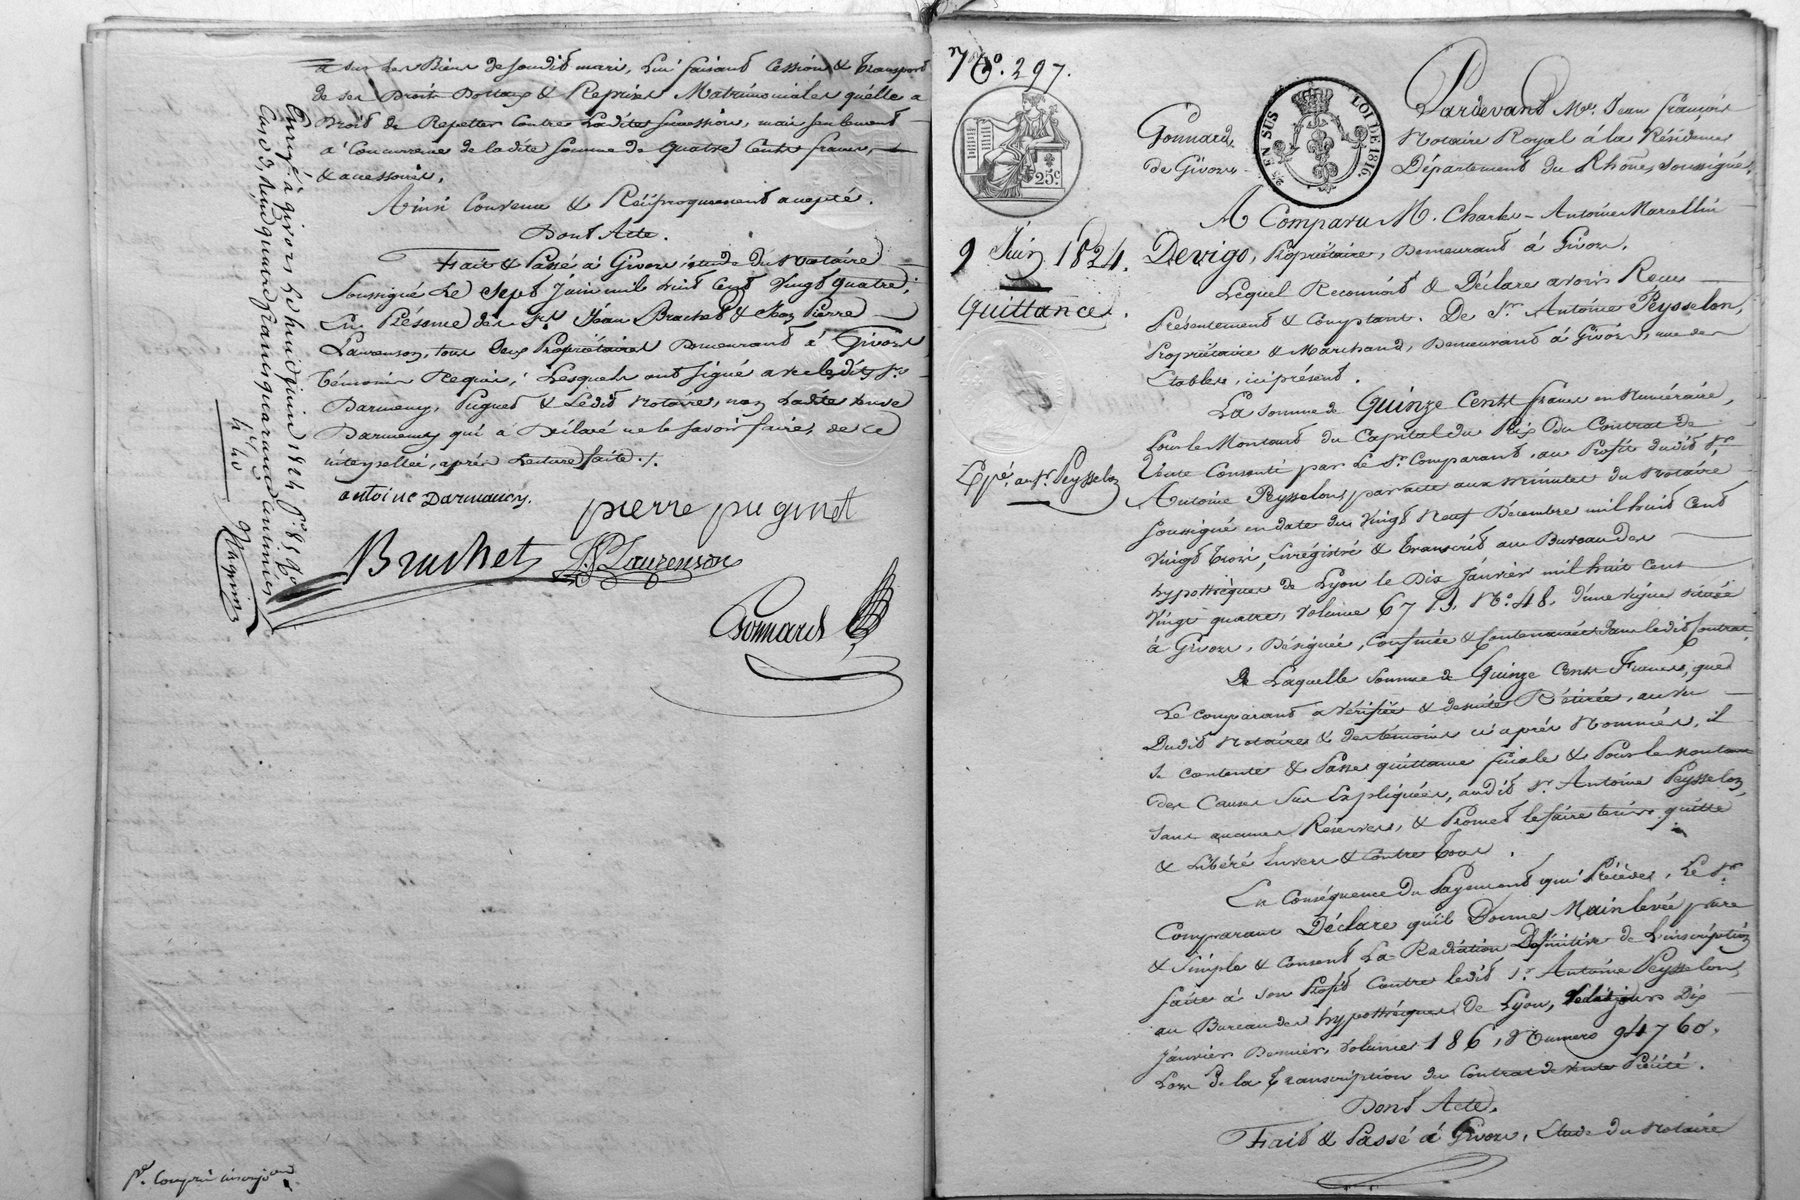 a sur les Biens de Soudit mari, Lui faisant Cession & Transport
de ses Droits Dotaux & Reprises Matrimoniales qu'elle a
Droit de Repetter Contre Ladite Succession, mais Seulement
a Concurrence de ladite Somme de quatre Cents francs,
& accessoires.
Ainsi Convenu & Réciproquement accepté.
Dont Acte.
Fait & Passé à Givors étude du Notaire
Soussigné Le Sept Juin mil huit Cent Vingt quatre,
En Présence des Srs. Jean Brachet & Jean Pierre
Laurenson, tous deux Propriétaires Demeurant à Givors,
témoins Requis; Lesquels ont Signé avec ledit Sr.
Darmency, Puginet & Ledit Notaire, non Ladite veuve
Darmency qui a Déclaré ne le Savoir faire, de ce
interpellée, après Lecture faite ./.
antoine Darmancy.
pierre puginet
Brachet
JP Laurenson
Gonnard
Enregé. à givors le huit juin 1824 fo. 85
quatre francs quarante centimes
4 40
No. 297.
25c
EN SUS
LOI DE 1816.
9 Juin 1824.
Quittance.
Expé. au Sr. Peysselon
Pardevant Me. Jean François
Gonnard, Notaire Royal à la Résidence
de Givors Département du Rhône, soussigné,
A Comparu M. Charles-Antoine Marcellin
Devigo, Propriétaire, Demeurant à Givors.
Lequel Reconnoit & Déclare avoir Reçu
Présentement & Comptant. De Sr. Antoine Peysselon,
Propriétaire & Marchand, Demeurant à Givors, rue des
Etables, ici présent.
La Somme de Quinze Cents francs en Numéraire,
Pour le Montant du Capital du Prix Du Contrat de
Vente Consenti par le Sr. Comparant, au Profit dudit Sr.
Antoine Peysselon, par acte aux minutes du Notaire
Soussigné en date du Vingt Neuf Décembre mil huit Cent
Vingt trois, Enregistré & transcrit au Bureau des
hypothèques de Lyon le Dix Janvier mil huit Cent
Vingt quatre, Volume 67 No. 48, d'une vigne située
à Givors, Désignée, Confinée & Contenancée dans ledit Contrat.
De Laquelle Somme de Quinze Cents Francs, que
Le Comparant a Vérifiée & de suite Retirée, au vu
Dudit Notaire & des témoins ci après Nommés, il
se contente & Passe quittance finale & Pour le montant
des Causes Sus Expliquées, audit Sr. Antoine Peysselon,
Sans aucunes Réserves, & Promet le faire tenir quitte
& Libéré Envers & Contre tous.
En Conséquence du Payement qui Précède, Le Sr.
Comparant Déclare qu'il Donne Mainlevée pure
& Simple & Consent La Radiation Définitive de L'inscription
faite à Son Profit Contre ledit Sr. Antoine Peysselon,
au Bureau des hypothèques de Lyon, ledit jour Dix
Janvier Dernier, Volume 186, Numero 94760.
Lors de la transcription du Contrat de vente Précité.
Dont Acte.
Fait & Passé à Givors, Etude du Notaire